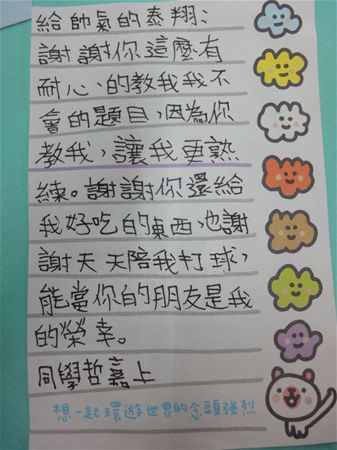 給帥氣的泰翔:
謝謝你這麼有
耐心、的教我我不
會的題目,因為你
教我,讓我更熟
練。謝謝你還給
我好吃的東西,也謝
謝天天陪我打球,
能當你的朋友是我
的榮幸。
同學哲嘉上
想一起環遊世界的念頭強烈